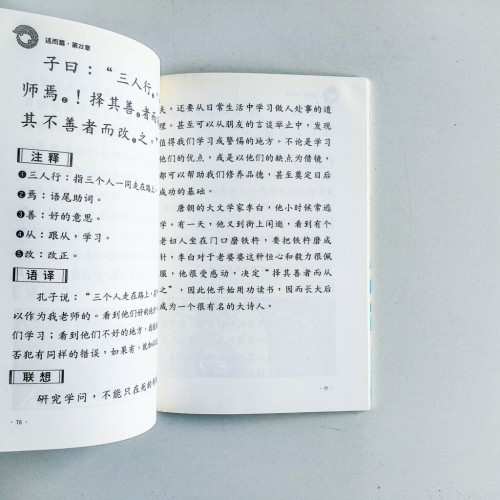 述而篇·第22章
子曰：“三人行❶，
师焉❷！择其善❸者而
其不善者而改❺之。
注释
❶三人行：指三个人一同走在路上
❷焉：语尾助词。
❸善：好的意思。
❹从：跟从，学习。
❺改：改正。
语译
孔子说：“三个人走在路上，
以作为我老师的。看到他们好的地方
们学习；看到他们不好的地方，我
否犯有同样的错误，如果有，就
联想
研究学问，不能只在死的
·76·
夫，还要从日常生活中学习做人处事的道
理。甚至可以从朋友的言谈举止中，发现
值得我们学习或警惕的地方。不论是学习
他们的优点，或是以他们的缺点为借镜，
都可以帮助我们修养品德，甚至奠定日后
成功的基础。
唐朝的大文学家李白，他小时候常逃
学。有一天，他又到街上闲逛，看到有个
老妇人坐在门口磨铁杵，要把铁杵磨成
针，李白对于老婆婆这种恒心和毅力很佩
服，他很受感动，决定“择其善者而从
之”，因此他开始用功读书，因而长大后
成为一个很有名的大诗人。